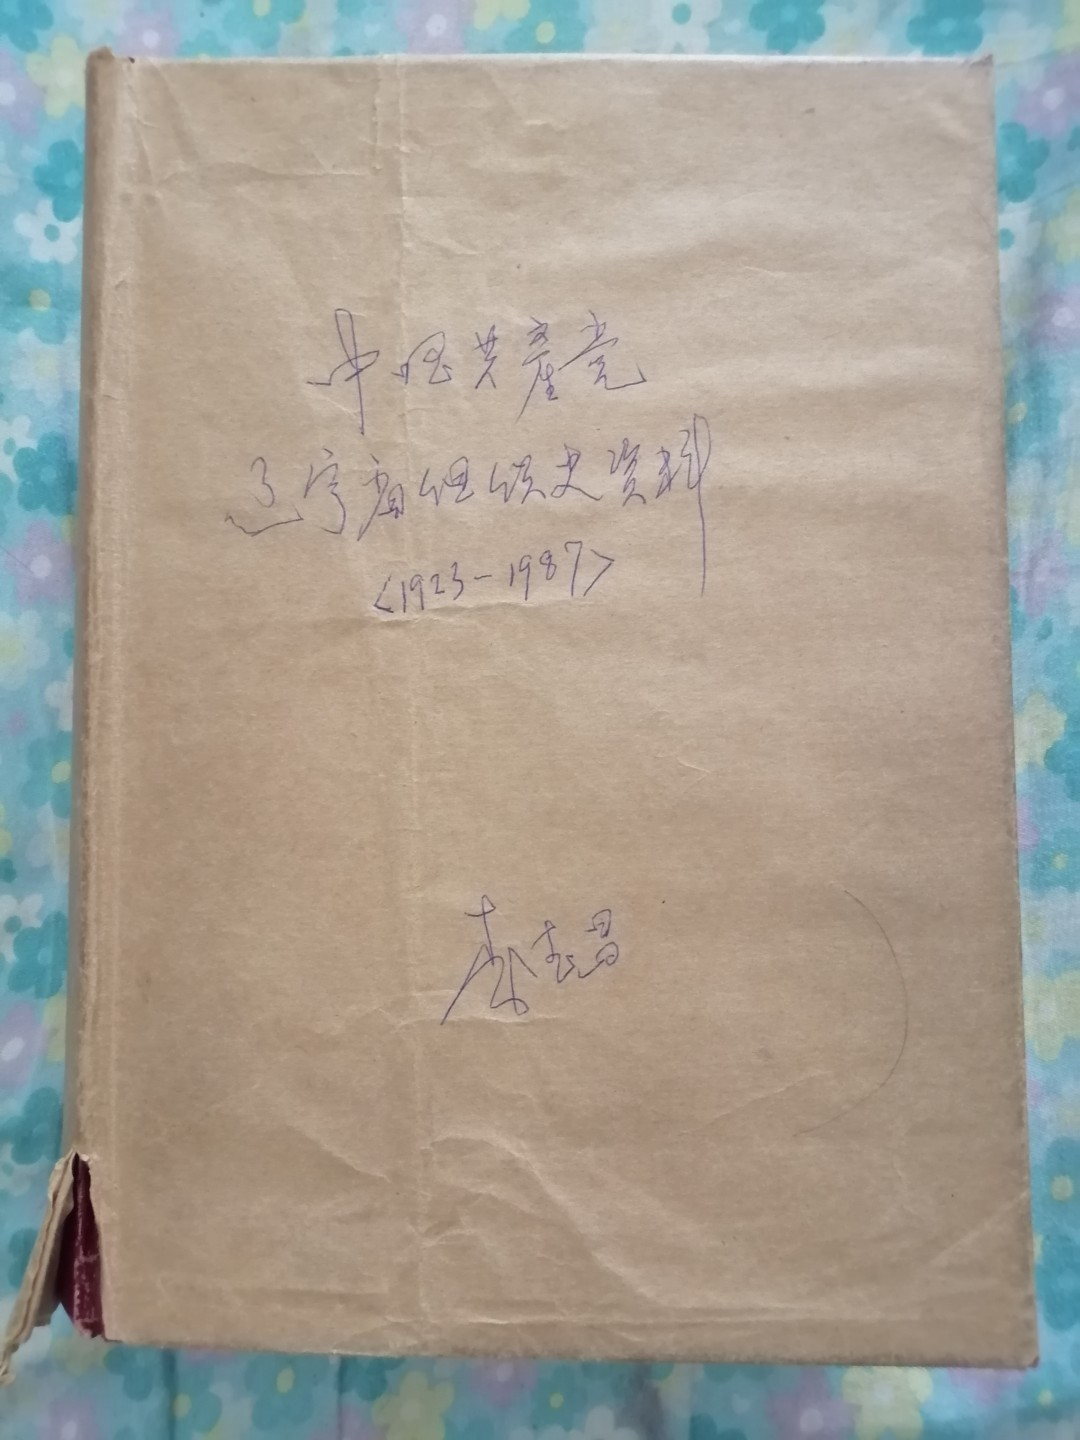 中国共産党
辽宁省组织史资料
<1923-1987>
李志昌